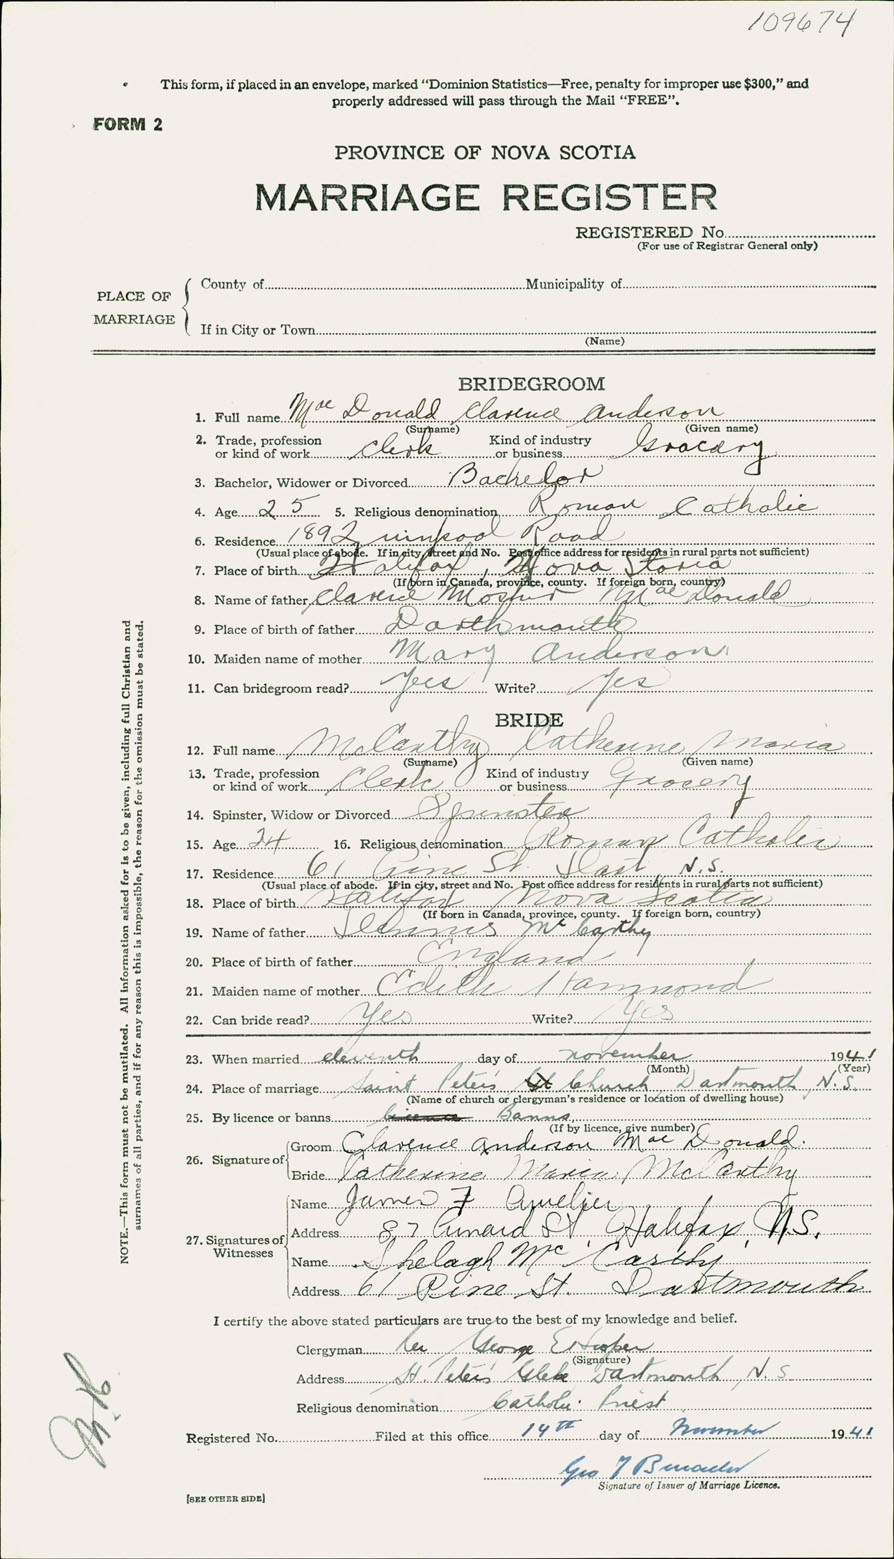 109674
This form, if placed in an envelope, marked “Dominion Statistics—Free, penalty for improper use $300,” and
properly addressed will pass through the Mail “FREE”.
FORM 2
PROVINCE OF NOVA SCOTIA
MARRIAGE REGISTER
REGISTERED No.
(For use of Registrar General only)
PLACE OF MARRIAGE
County of Municipality of
If in City or Town
(Name)
BRIDEGROOM
1. Full name Mac Donald Clarence Anderson
(Surname) (Given name)
2. Trade, profession or kind of work Clerk Kind of industry or business Grocery
3. Bachelor, Widower or Divorced Bachelor
4. Age 25 5. Religious denomination Roman Catholic
6. Residence 189 Quinpool Road
(Usual place of abode. If in city, street and No. Post office address for residents in rural parts not sufficient)
7. Place of birth Halifax, Nova Scotia
(If born in Canada, province, county. If foreign born, country)
8. Name of father Clarence Mac Donald
9. Place of birth of father Darthmouth
10. Maiden name of mother Mary Anderson
11. Can bridegroom read? Yes Write? Yes
BRIDE
12. Full name McCarthy Catherine Maria
(Surname) (Given name)
13. Trade, profession or kind of work Clerk Kind of industry or business Grocery
14. Spinster, Widow or Divorced Spinster
15. Age 24 16. Religious denomination Roman Catholic
17. Residence 61 Pine St Dart N.S.
(Usual place of abode. If in city, street and No. Post office address for residents in rural parts not sufficient)
18. Place of birth Halifax Nova Scotia
(If born in Canada, province, county. If foreign born, country)
19. Name of father Dennis McCarthy
20. Place of birth of father England
21. Maiden name of mother Edith Hammond
22. Can bride read? Yes Write? Yes
23. When married eleventh day of november 1941
(Month) (Year)
24. Place of marriage Saint Peter's Church, Dartmouth, N.S.
(Name of church or clergyman's residence or location of dwelling house)
25. By licence or banns Banns
(If by licence, give number)
26. Signature of
Groom Clarence Anderson Mac Donald.
Bride Catherine Maria McCarthy
27. Signatures of Witnesses
Name James F
Address 87 Cunard St Halifax, N.S.
Name Shelagh McCarthy
Address 61 Pine St. Dartmouth
I certify the above stated particulars are true to the best of my knowledge and belief.
Clergyman Rev George E Hooper
(Signature)
Address St. Peter's Glebe Dartmouth, N.S.
Religious denomination Catholic Priest
Registered No. Filed at this office 14th day of November 1941
Geo
Signature of Issuer of Marriage Licence.
[SEE OTHER SIDE]
NOTE.—This form must not be mutilated. All information asked for is to be given, including full Christian and
surnames of all parties, and if for any reason this is impossible, the reason for the omission must be stated.